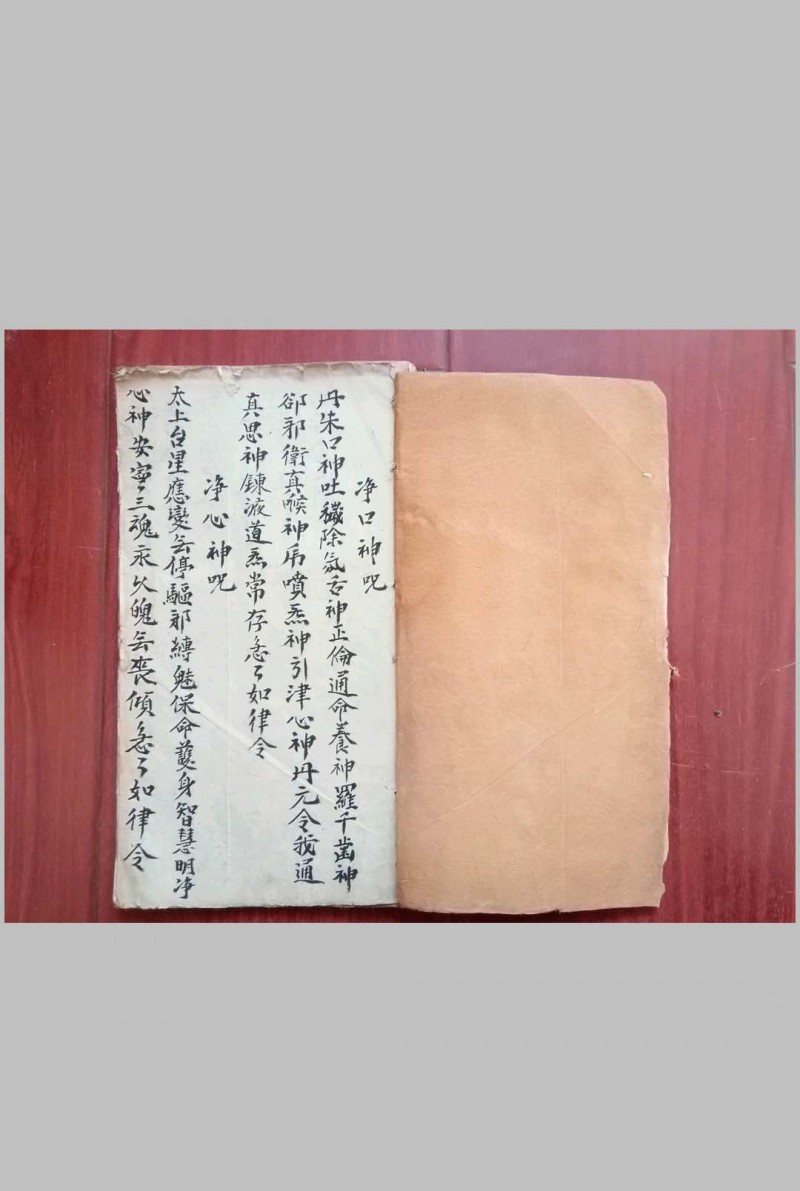 净口神呪
丹朱口神吐穢除氛舌神正倫通命養神羅千齒神
郤邪衛真喉神虎噴炁神引津心神丹元令我通
真思神鍊液道炁常存急〻如律令
净心神呪
太上台星應變无停驅邪縛魅保命護身智慧明净
心神安寧三魂永久魄无喪傾急〻如律令